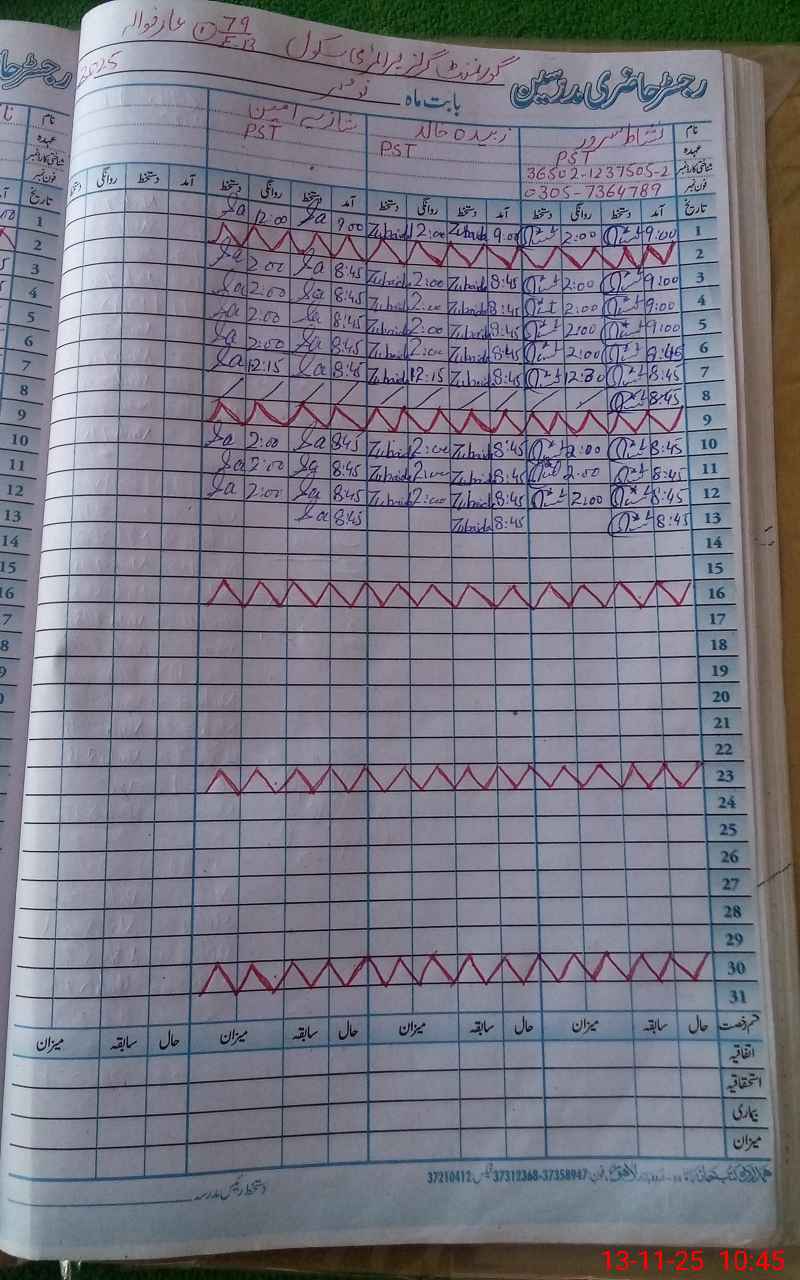 گورنمنٹ گرلز پرائمری سکول 79 E.B عارفوالہ
رجسٹر حاضری مدرسین
بابت ماہ نومبر 2025
نام نشاط سرور زبیدہ خالد شازیہ امین
عہدہ PST PST PST
شناختی کارڈ نمبر 36502-1237505-2
فون نمبر 0305-7364789
تاریخ آمد دستخط روانگی دستخط آمد دستخط روانگی دستخط آمد دستخط روانگی دستخط آمد دستخط روانگی دستخط
1 9:00 2:00 9:00 Zubaida 12:00 Zubaida 9:00 Sa 12:00 Sa
2
3 9:00 2:00 8:45 Zubaida 2:00 Zubaida 8:45 Sa 2:00 Sa
4 9:00 2:00 8:45 Zubaida 2:00 Zubaida 8:45 Sa 2:00 Sa
5 9:00 2:00 8:45 Zubaida 2:00 Zubaida 8:45 Sa 2:00 Sa
6 8:45 2:00 8:45 Zubaida 2:00 Zubaida 8:45 Sa 2:00 Sa
7 8:45 12:30 8:45 Zubaida 12:15 Zubaida 8:45 Sa 12:15 Sa
8 8:45
9
10 8:45 2:00 8:45 Zubaida 2:00 Zubaida 8:45 Sa 2:00 Sa
11 8:45 2:00 8:45 Zubaida 2:00 Zubaida 8:45 Sa 2:00 Sa
12 8:45 2:00 8:45 Zubaida 2:00 Zubaida 8:45 Sa 2:00 Sa
13 8:45 8:45 Zubaida 8:45 Sa
14
15
16
17
18
19
20
21
22
23
24
25
26
27
28
29
30
31
قسم رخصت حال سابقہ میزان حال سابقہ میزان حال سابقہ میزان حال سابقہ میزان
اتفاقیہ
استحقاقیہ
بیماری
میزان
فون: 37358947-37312368 فیکس: 37210412
دستخط رئیس مدرسہ
13-11-25 10:45